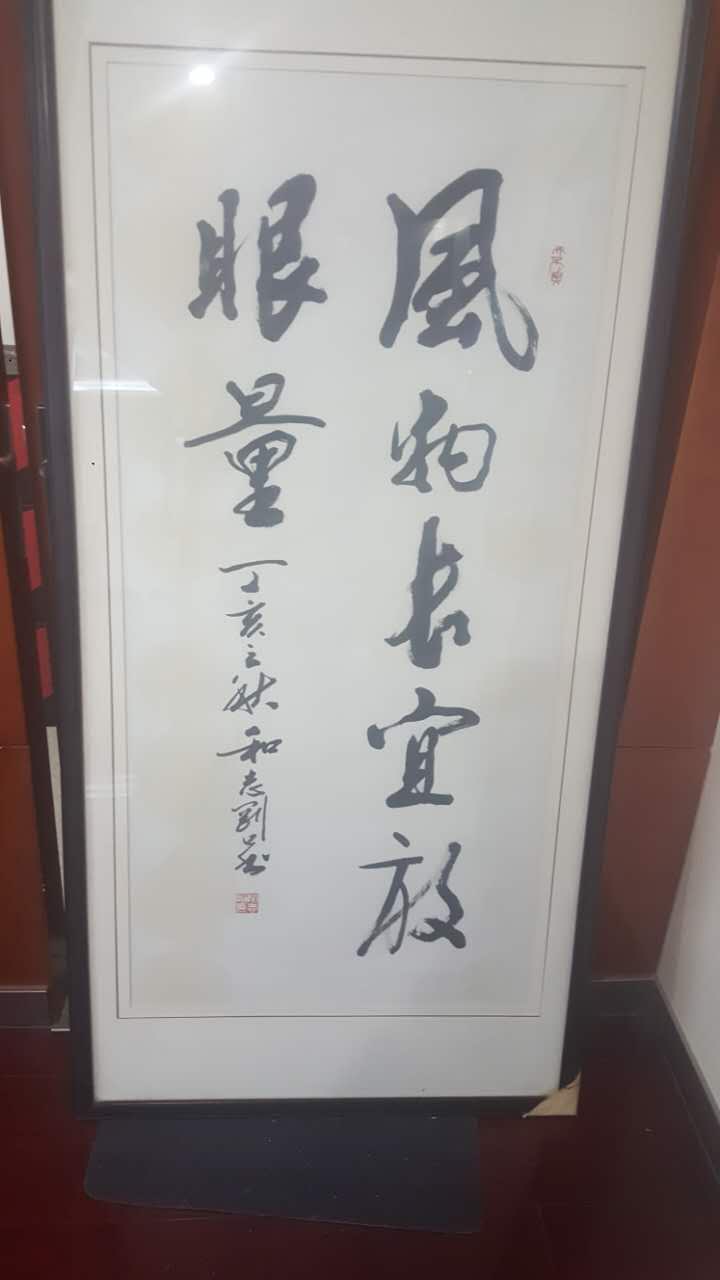 風物長宜放
眼量
丁亥之秋 和志劉